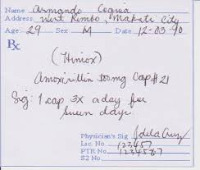 Name Armando Cequia
Address West Rembo, Makati City
Age 29 Sex M Date 12-03-90
Rx
(Himox)
Amoxicillin 500mg Cap #21
Sig: 1 cap 3x a day for
seven days
Physician's Sig
Lic. No. 123457
PTR No. 1234567
S2 No.